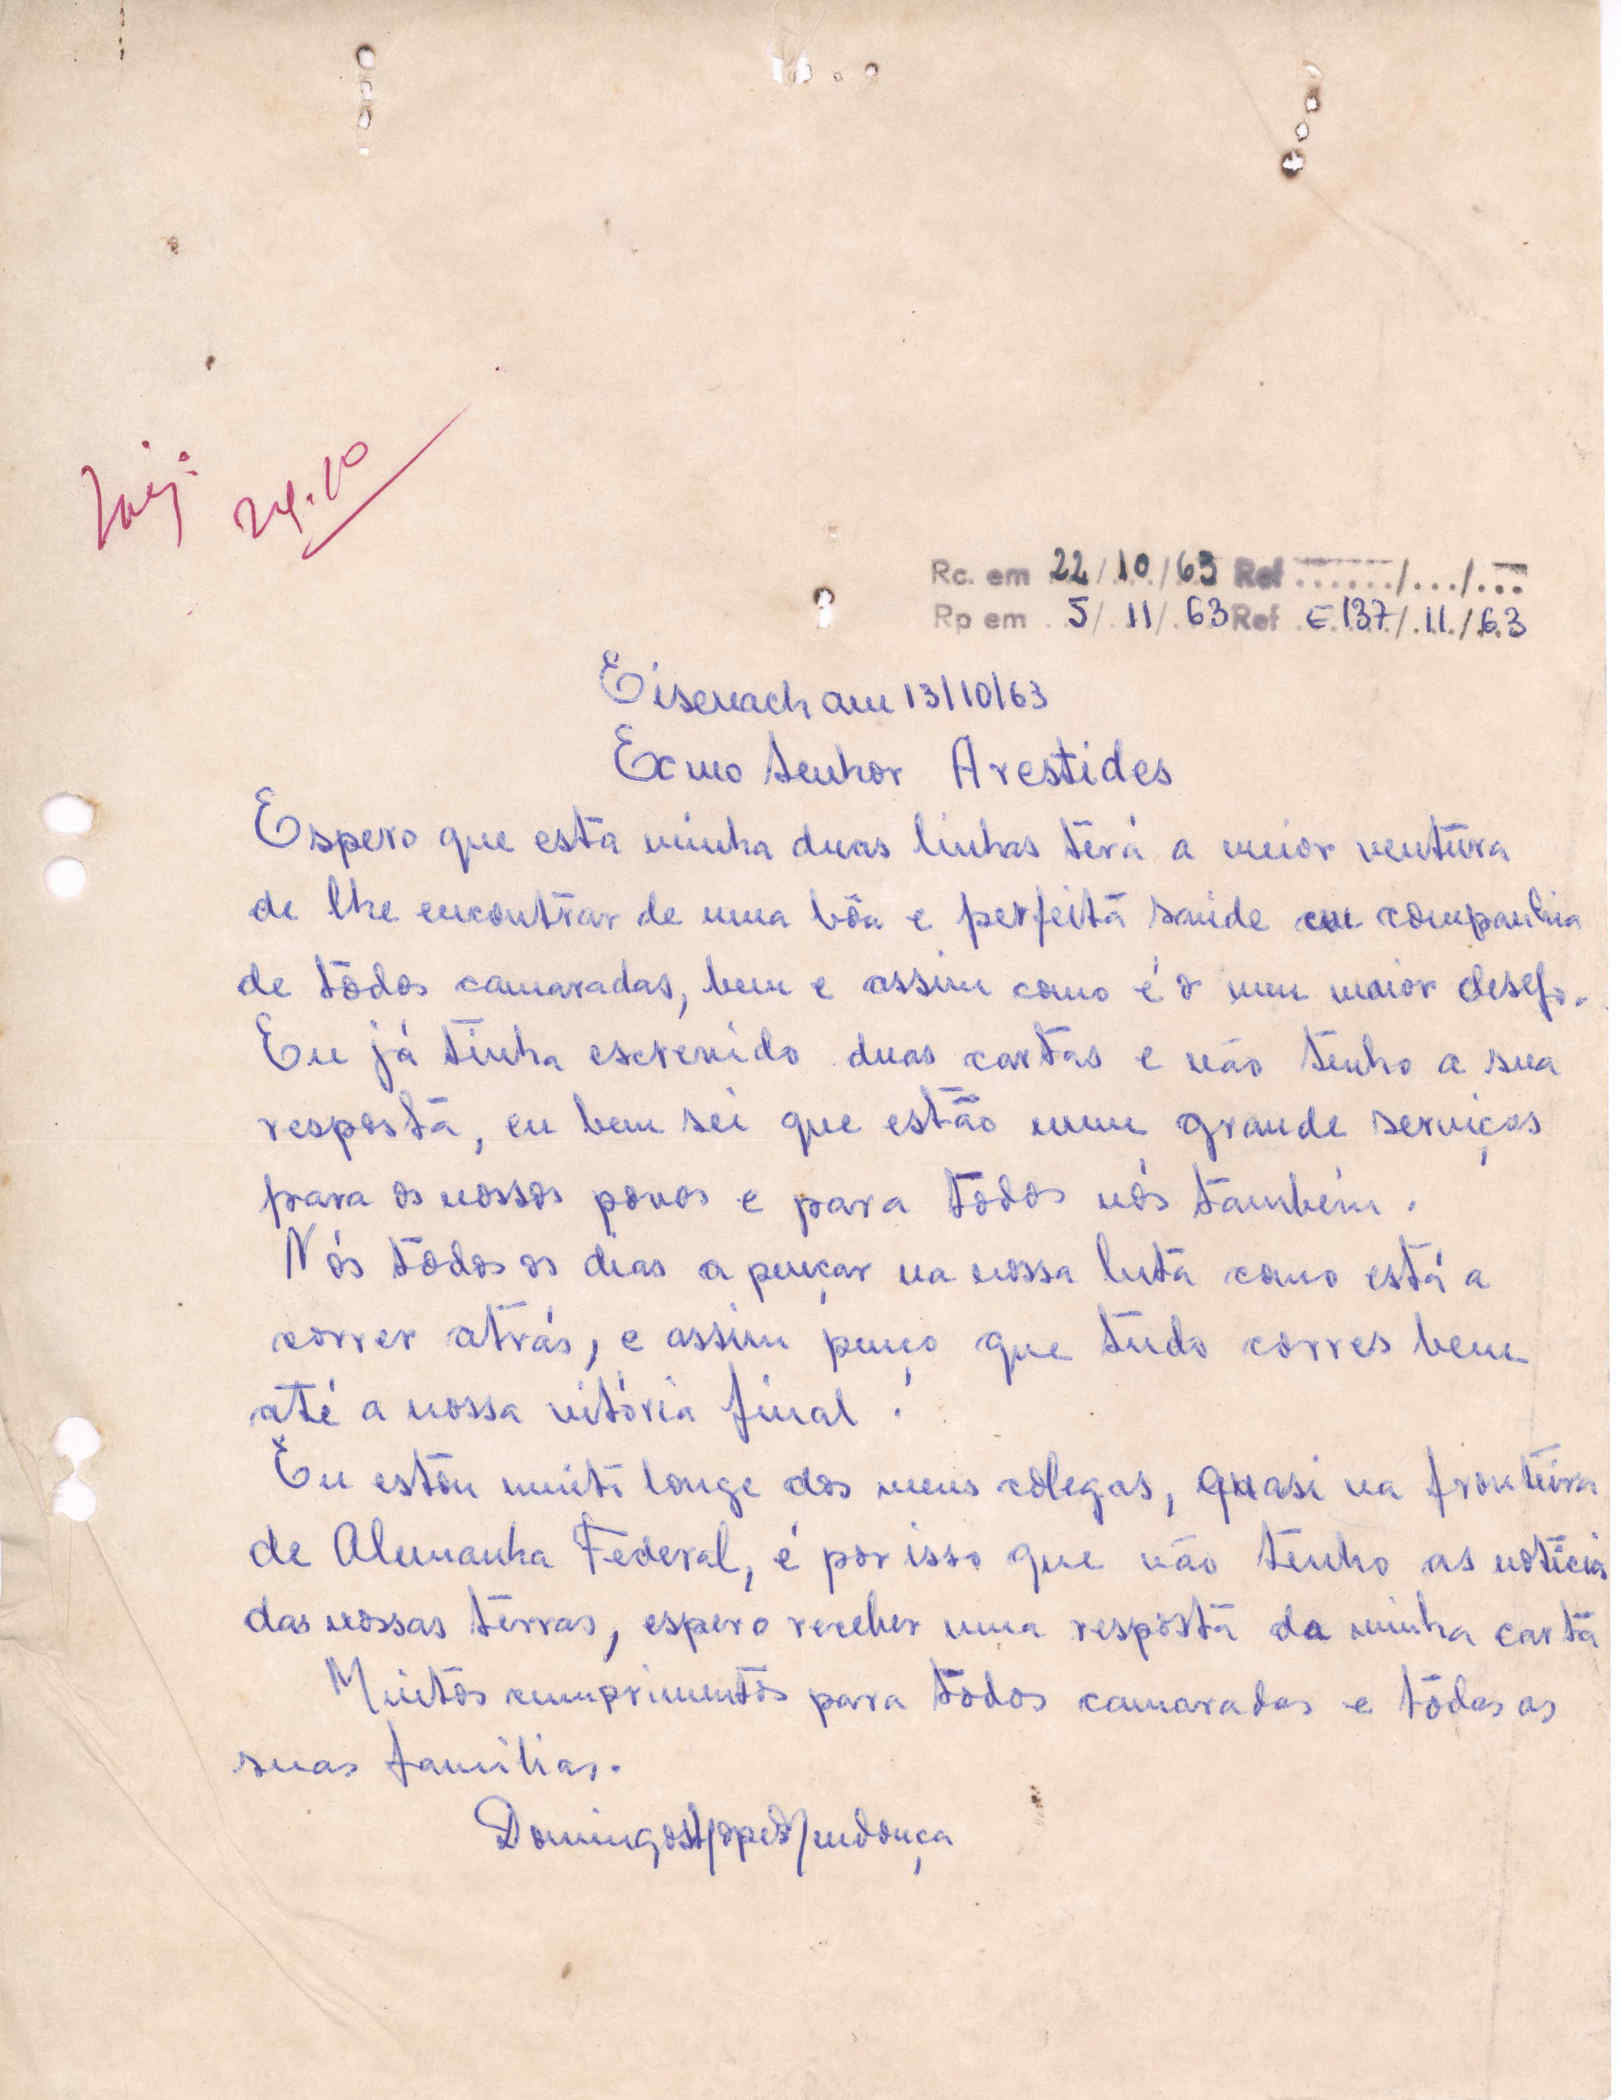 24.10
Rc. em 22/10/63 Ref ....../.../...
Rp em 5/11/63 Ref E.137/.11./63
Eisenach am 13/10/63
Exmo Senhor Arestides
Espero que esta minha duas linhas terá a meior ventura
de lhe encontrar de uma bôa e perfeita saúde em companhia
de todos camaradas, bem e assim como é o meu maior desejo.
Eu já tinha escrevido duas cartas e não tenho a sua
resposta, eu bem sei que estão num grande serviços
para os nossos povos e para todos nós também.
Nós todos os dias a pençar na nossa luta como está a
correr atrás, e assim penço que tudo corres bem
até a nossa vitória final!
Eu estou muito longe dos meus colegas, quasi na fronteira
de Alemanha Federal, é por isso que não tenho as notícias
das nossas terras, espero receber uma resposta da minha carta
Muitos cumprimentos para todos camaradas e tôdas as
suas famílias.
Domingos Lopes Mendonça